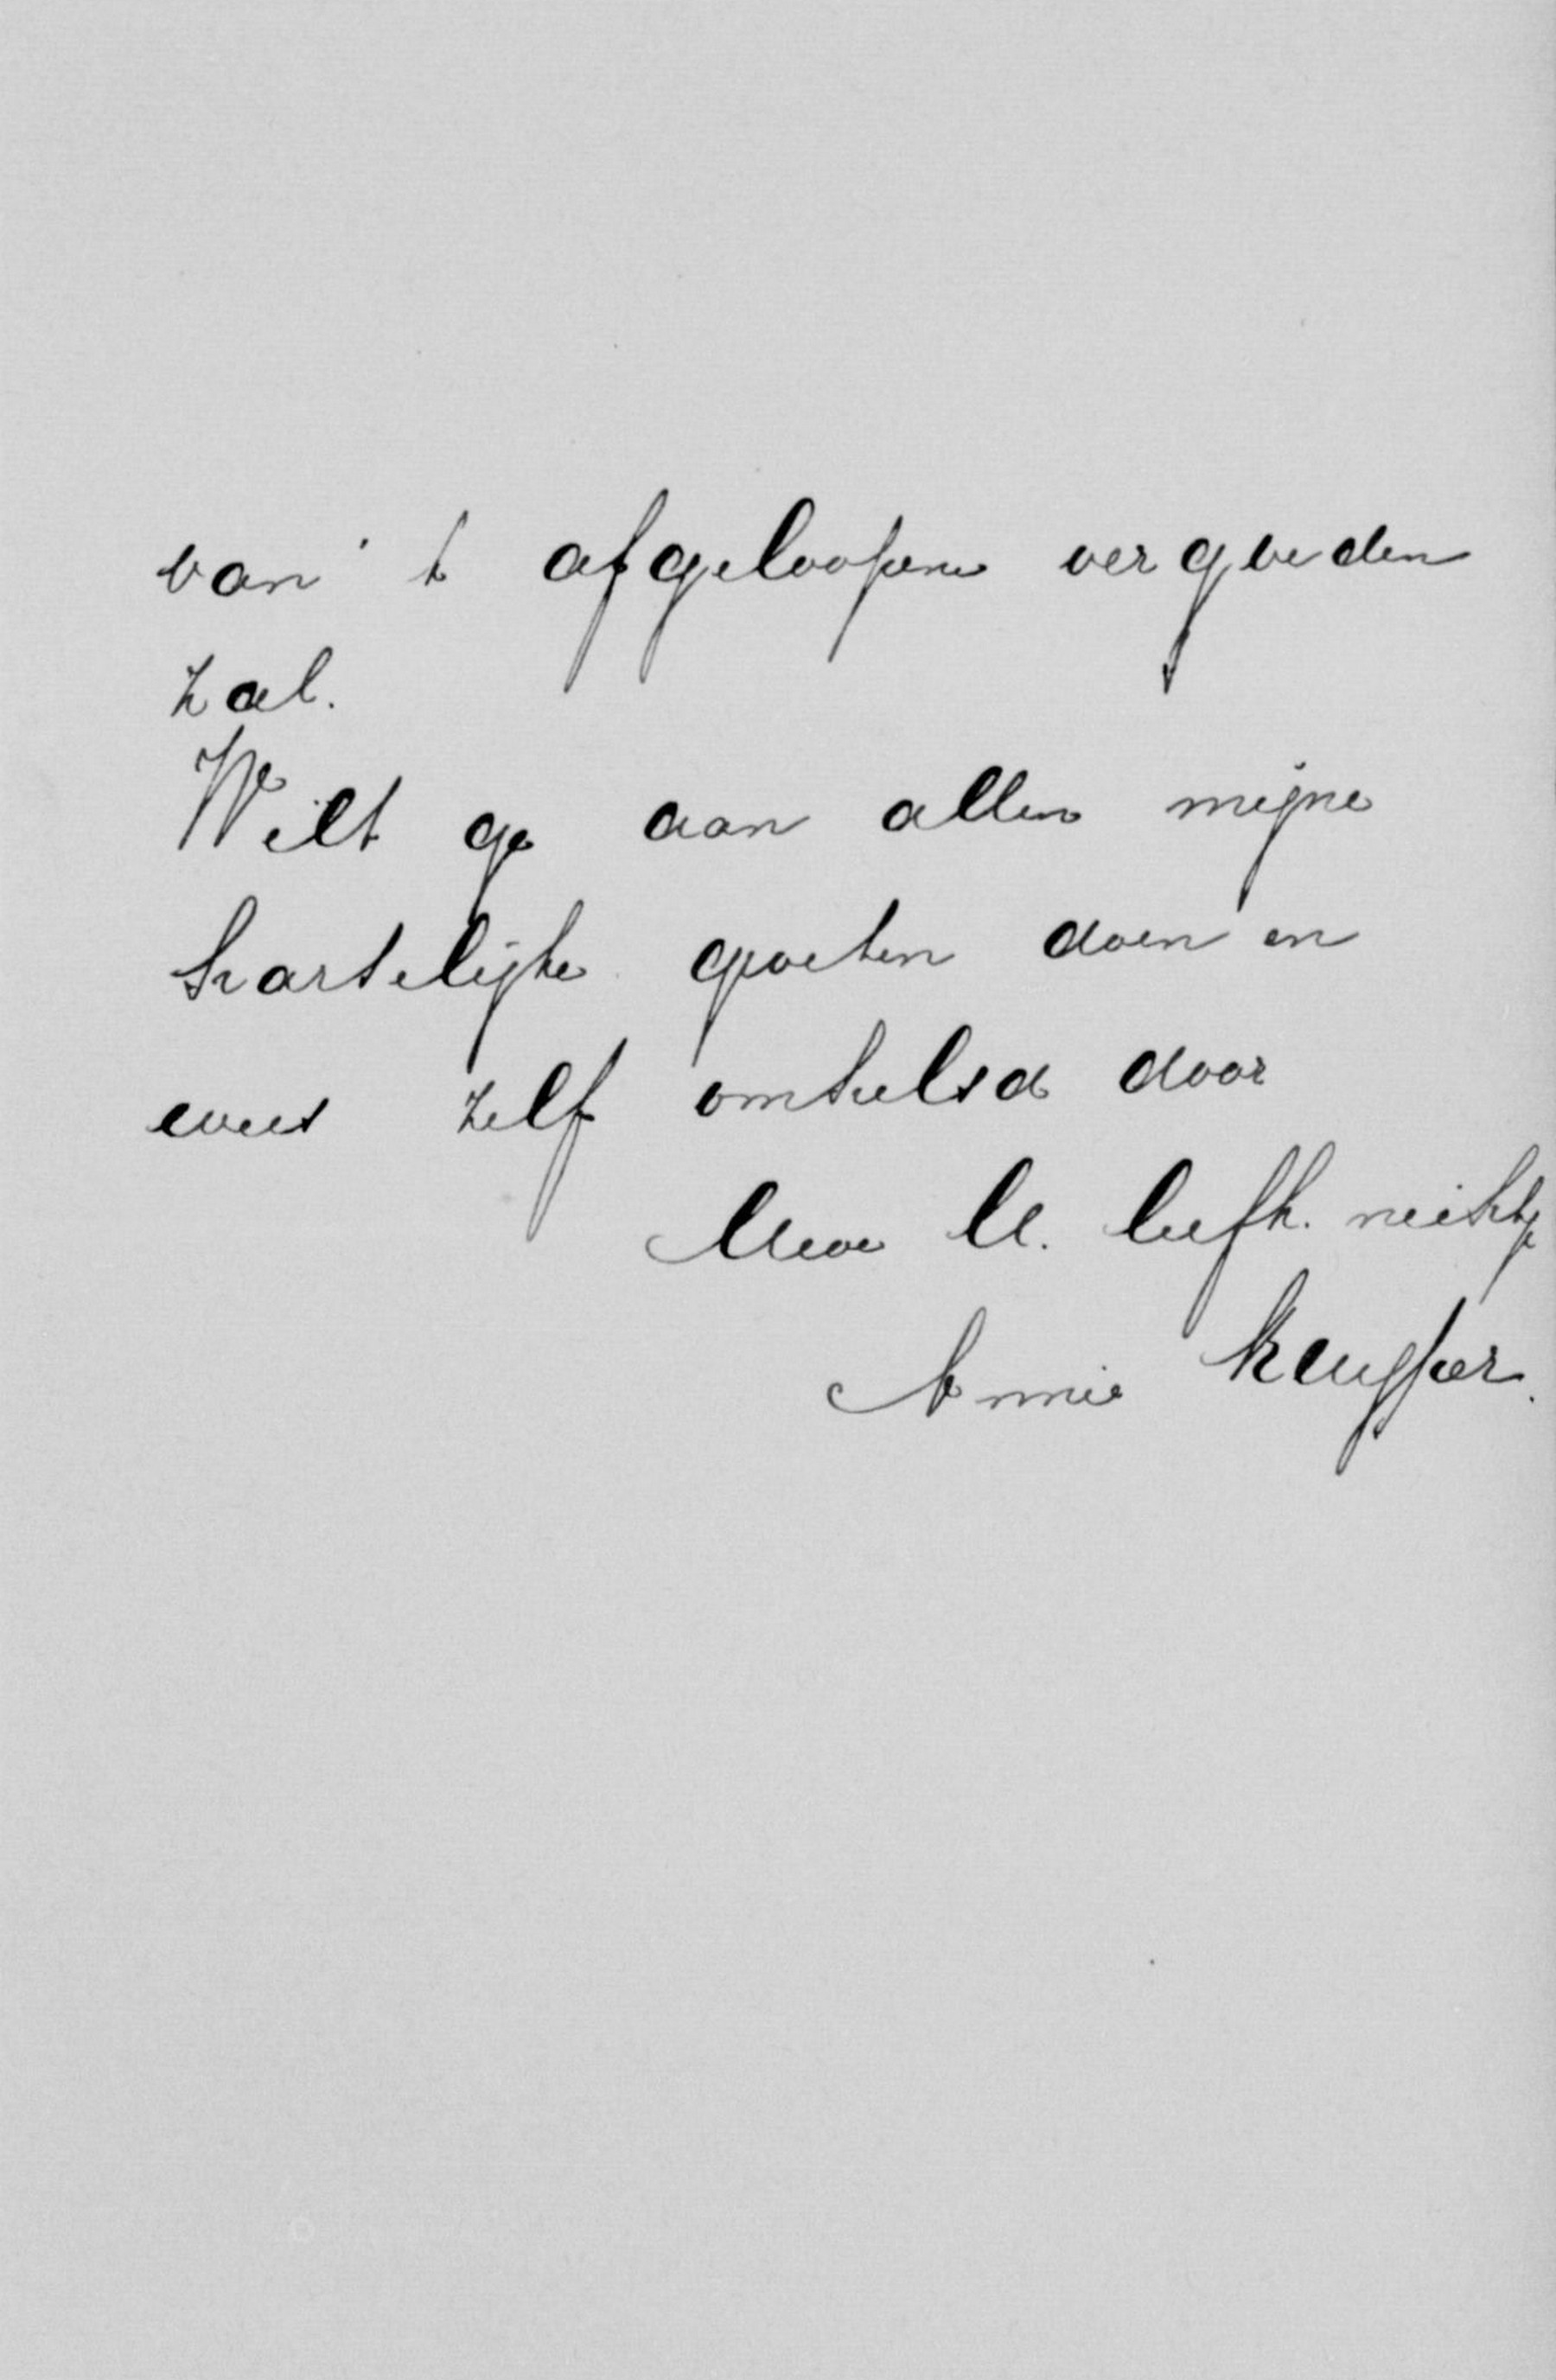 van 't afgeloopene vergoeden
zal.
Wilt ge aan allen mijne
hartelijke groeten doen en
wees zelf omhelsd door
Uwe U. liefh. nichtje
Annie Kuyper.